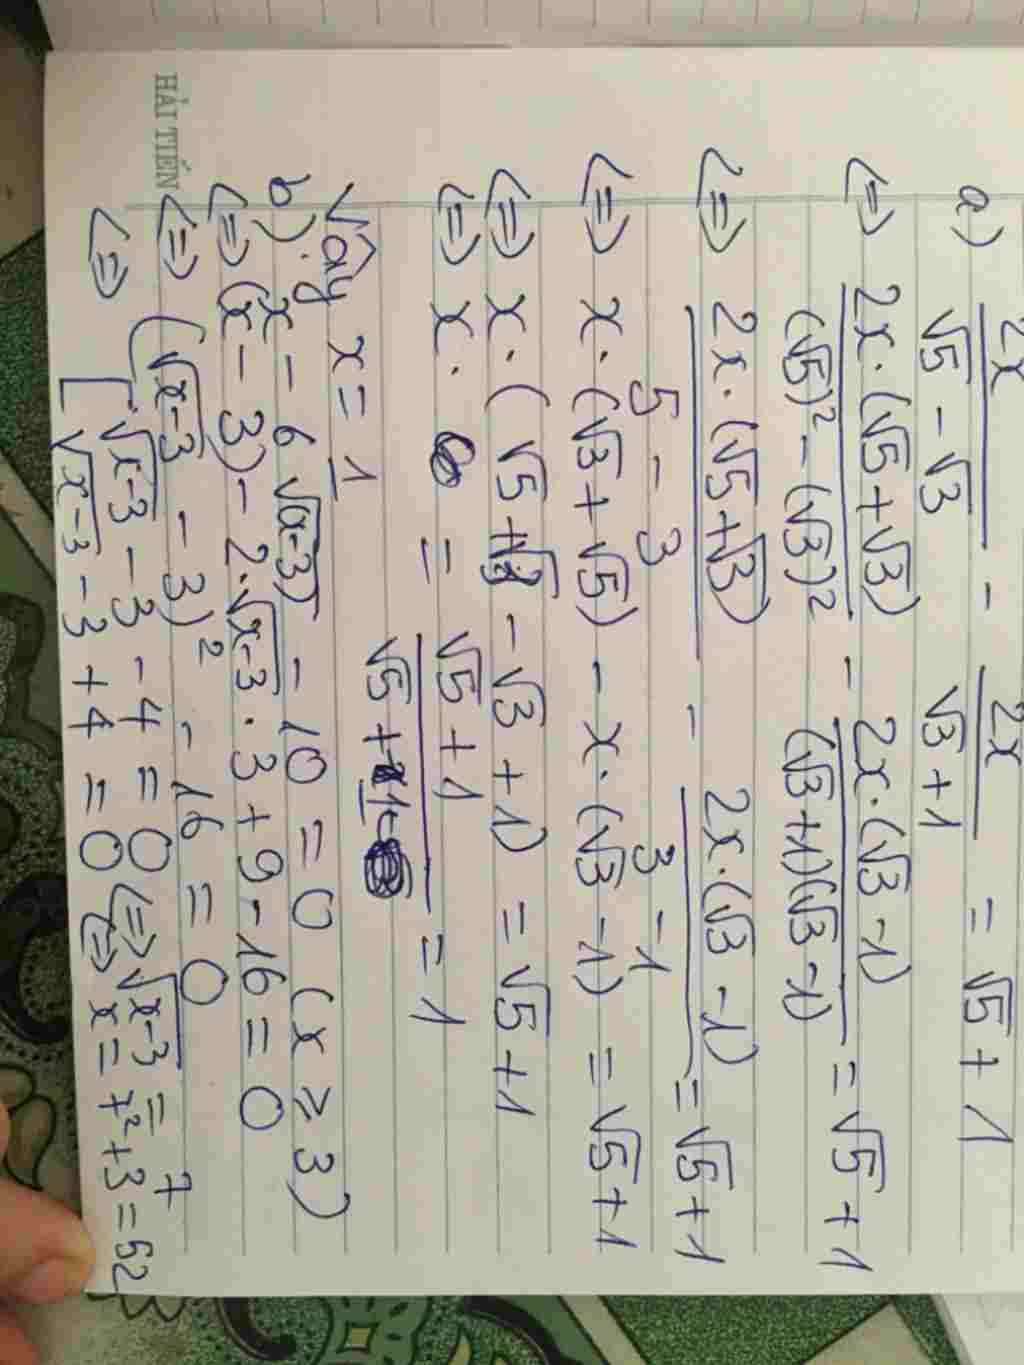 HẢI TIẾN
a) 2x/(√5 - √3) - 2x/(√3 + 1) = √5 + 1
<=> 2x.(√5+√3)/((√5)² - (√3)²) - 2x.(√3 -1)/((√3+1)(√3 -1)) = √5 + 1
<=> 2x.(√5+√3)/(5 - 3) - 2x.(√3 - 1)/(3 - 1) = √5 + 1
<=> x.(√3 + √5) - x.(√3 - 1) = √5 + 1
<=> x.(√5 + √3 - √3 + 1) = √5 + 1
<=> x. = (√5 + 1)/(√5 + 1) = 1
Vậy x = 1
b). x - 6√(x-3) - 10 = 0 (x ≥ 3)
<=> (x - 3) - 2.√x-3 . 3 + 9 - 16 = 0
<=> (√x-3 - 3)² - 16 = 0
<=> [ √x-3 - 3 - 4 = 0 <=> √x-3 = 7
√x-3 - 3 + 4 = 0 <=> x = 7² + 3 = 52